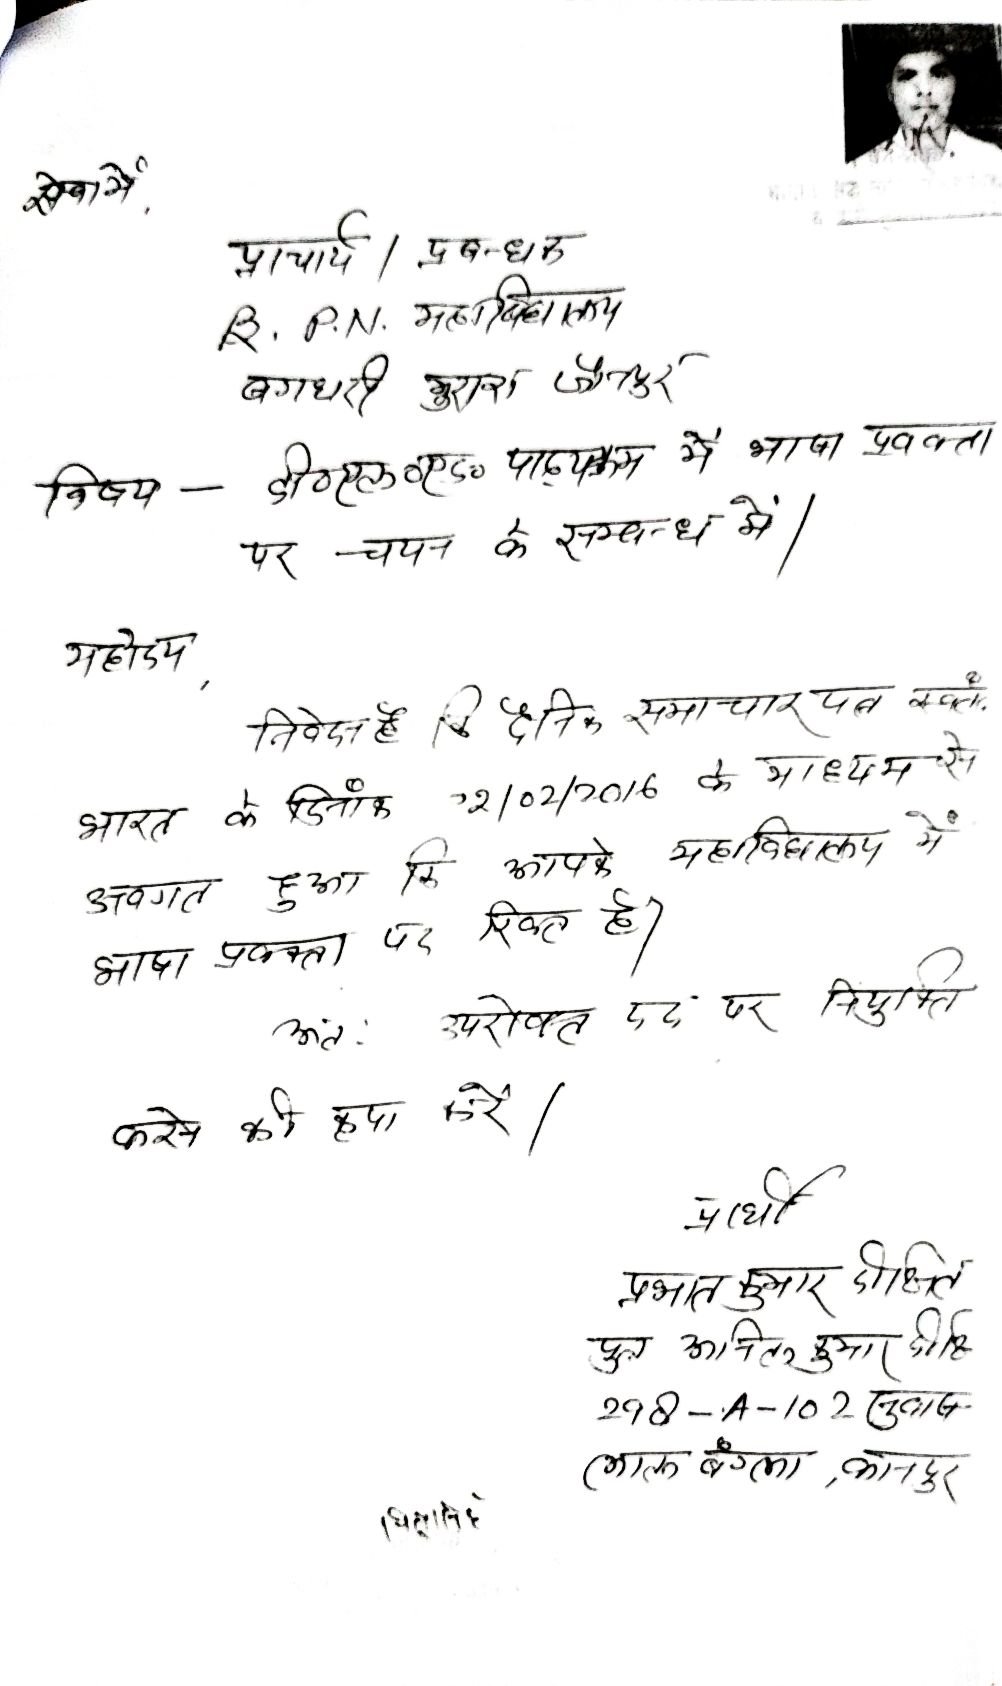 सेवा में,
प्राचार्य / प्रबन्धक
R. P.N. महाविद्यालय
बगथरी जौनपुर
विषय — डी०एल०एड० पाठ्यक्रम में भाषा प्रवक्ता
पर चयन के सम्बन्ध में।
महोदय,
निवेदन है कि दैनिक समाचार पत्र स्वतंत्र
भारत के दिनाँक 22/02/2016 के माध्यम से
अवगत हुआ कि आपके महाविद्यालय में
भाषा प्रवक्ता पद रिक्त है।
अतः उपरोक्त पद पर नियुक्ति
करने की कृपा करें।
प्रार्थी
प्रभात कुमार दीक्षित
पुत्र कुमार दीक्षि
298-A-102
लाल बँगला, कानपुर